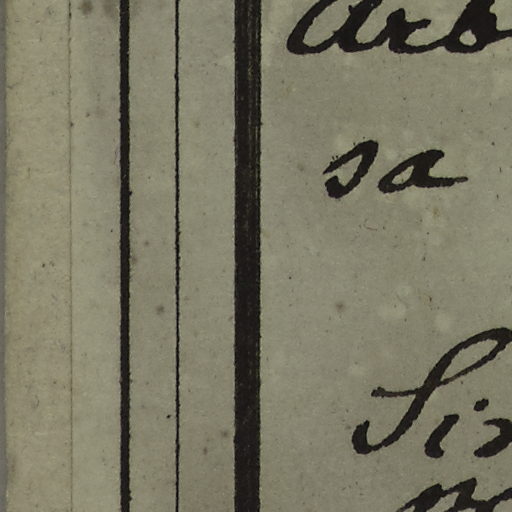 Arb
sa
Sin